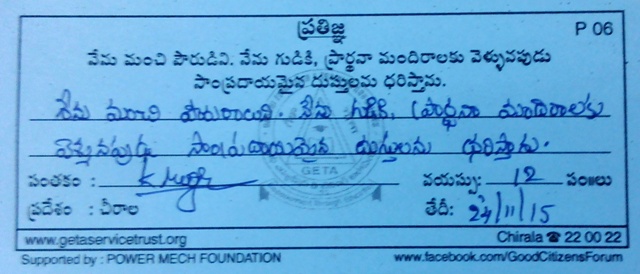 ప్రతిజ్ఞ
P 06
నేను మంచి పౌరుడిని. నేను గుడికి, ప్రార్థనా మందిరాలకు వెళ్ళునపుడు
సాంప్రదాయమైన దుస్తులను ధరిస్తాను.
నేను మంచి పౌరుడిని. నేను గుడికి, ప్రార్థనా మందిరాలకు
వెళ్ళునపుడు సాంప్రదాయమైన దుస్తులను ధరిస్తాను.
GETA
సంతకం : వయస్సు: 12 సం॥లు
ప్రదేశం : చీరాల తేదీ: 24/11/15
www.getaservicetrust.org Chirala ☎ 22 00 22
Supported by : POWER MECH FOUNDATION www.facebook.com/GoodCitizensForum